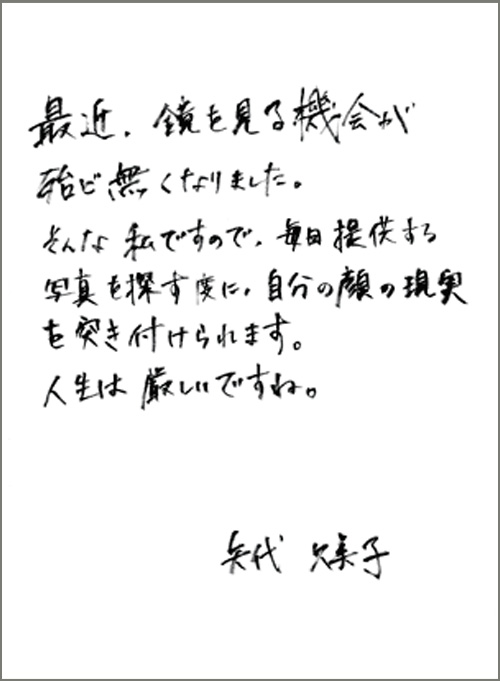 最近、鏡を見る機会が
殆ど無くなりました。
そんな私ですので、毎日提供する
写真を探す度に、自分の顔の現実
を突き付けられます。
人生は厳しいですね。
矢代 久美子